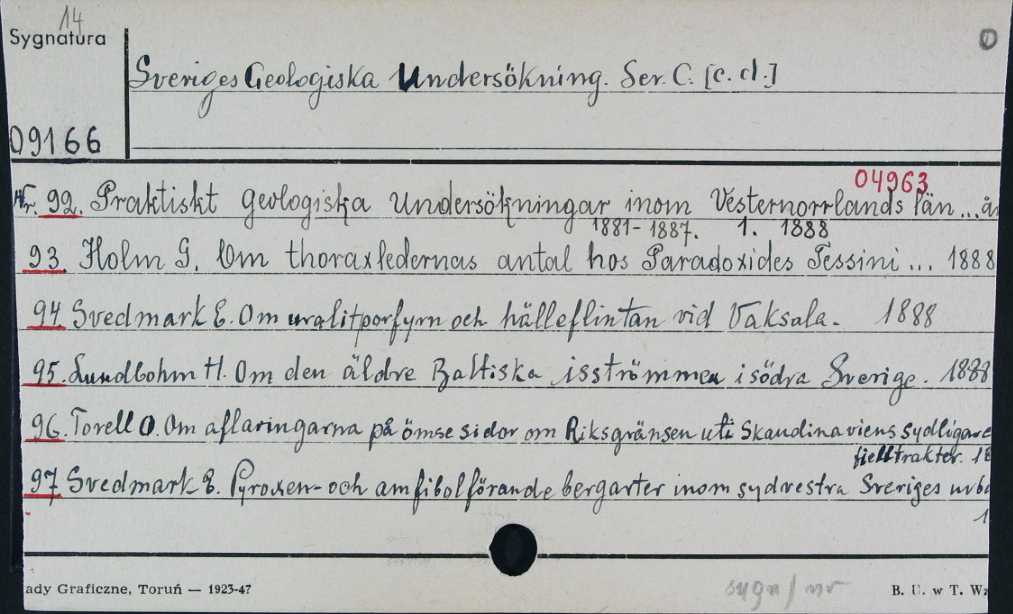 14
Sygnatura
09166
Sveriges Geologiska Undersökning. Ser. C. [c. d.]
04963
Nr. 92. Praktiskt geologiska Undersökningar inom Vesternorrlands län... år
1881-1887. 1. 1888
93. Holm G. Om thoraxledernas antal hos Paradoxides Tessini ... 1888
94 Svedmark E. Om uralitporfyrn och hälleflintan vid Vaksala. 1888
95. Lundbohm H. Om den äldre Baltiska isströmmen i södra Sverige. 1888
96. Torell O. Om aflaringarna på ömse sidor om Riksgränsen uti Skandinaviens sydligare
fjelltrakter. 18
97 Svedmark E. Pyroxen- och amfibolförande bergarter inom sydvestra Sveriges urbe
1
ady Graficzne, Toruń — 1923-47
sygn/nr
B. U. w T. Wz